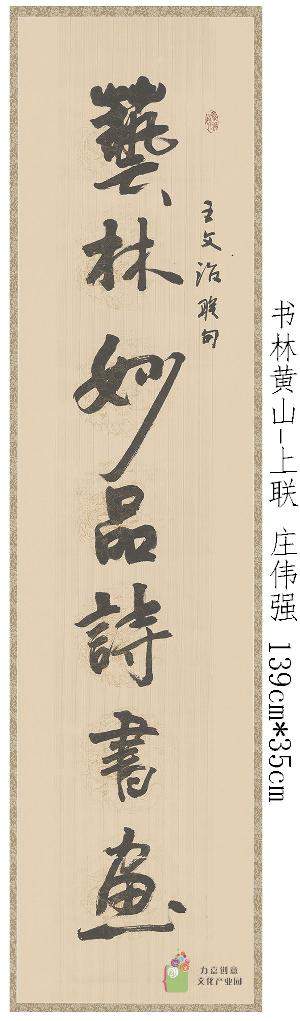 藝林妙品詩書畫
王文治联句
书林黄山-上联 庄伟强 139cm*35cm
力高创意
文化产业园